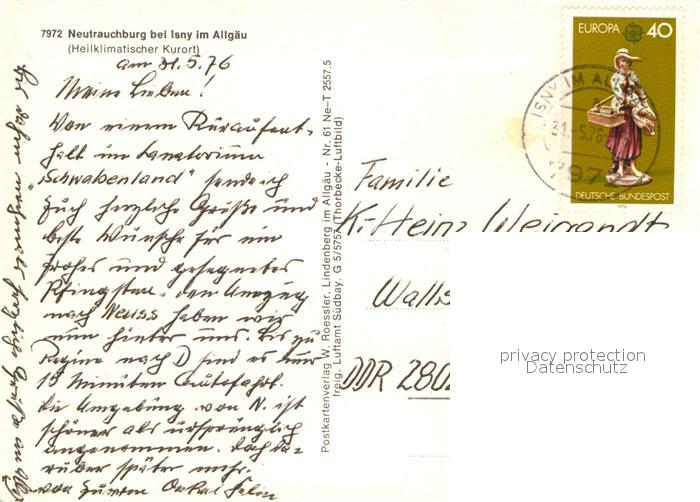 7972 Neutrauchburg bei Isny im Allgäu
(Heilklimatischer Kurort)
am 31.5.76
Meine Lieben!
Von einem Kuraufent-
halt im Sanatorium
"Schwabenland" sende ich
Euch herzliche Grüße und
beste Wünsche für ein
frohes und gesegnetes
Pfingsten. den Umzug
nach Neuss haben wir
nun hinter uns. Bis zu
Regine nach D sind es nur
15 Minuten Autofahrt.
Die Umgebung von N. ist
schöner als ursprünglich
angenommen. Doch da-
rüber später mehr.
von Eurem Onkel Felix
Bis dahin nochmals herzliche Grüße an
Postkartenverlag W. Roessler, Lindenberg im Allgäu - Nr. 61 Ne-T 2557.5
freig. Luftamt Südbay. G 5/5757 (Thorbecke-Luftbild)
EUROPA 40
DEUTSCHE BUNDESPOST
1976
ISNY IM AL
31.-5.76
797
Familie
K.-Heinz Weigandt
Walls
DDR 280
privacy protection
Datenschutz